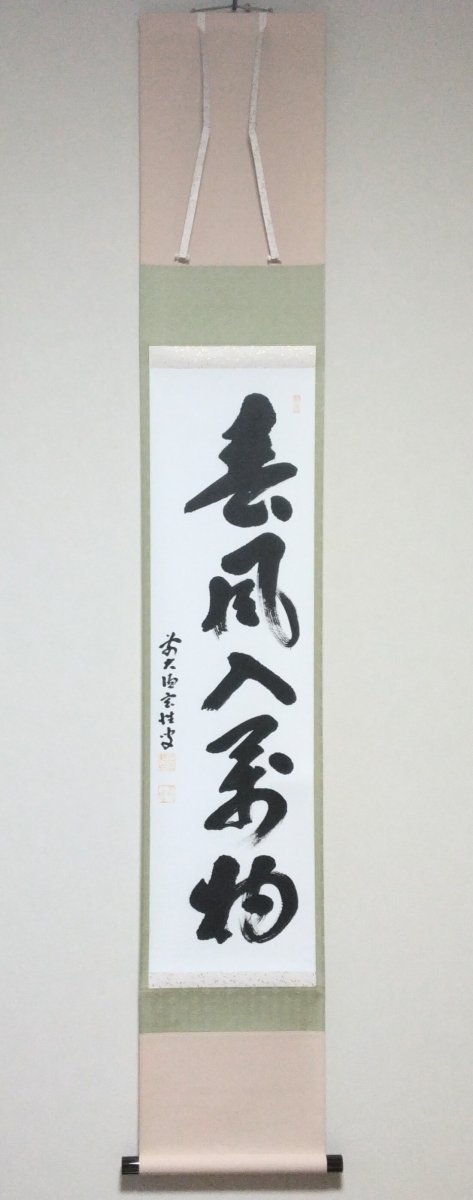 春風入萬物
前大徳宗性叟